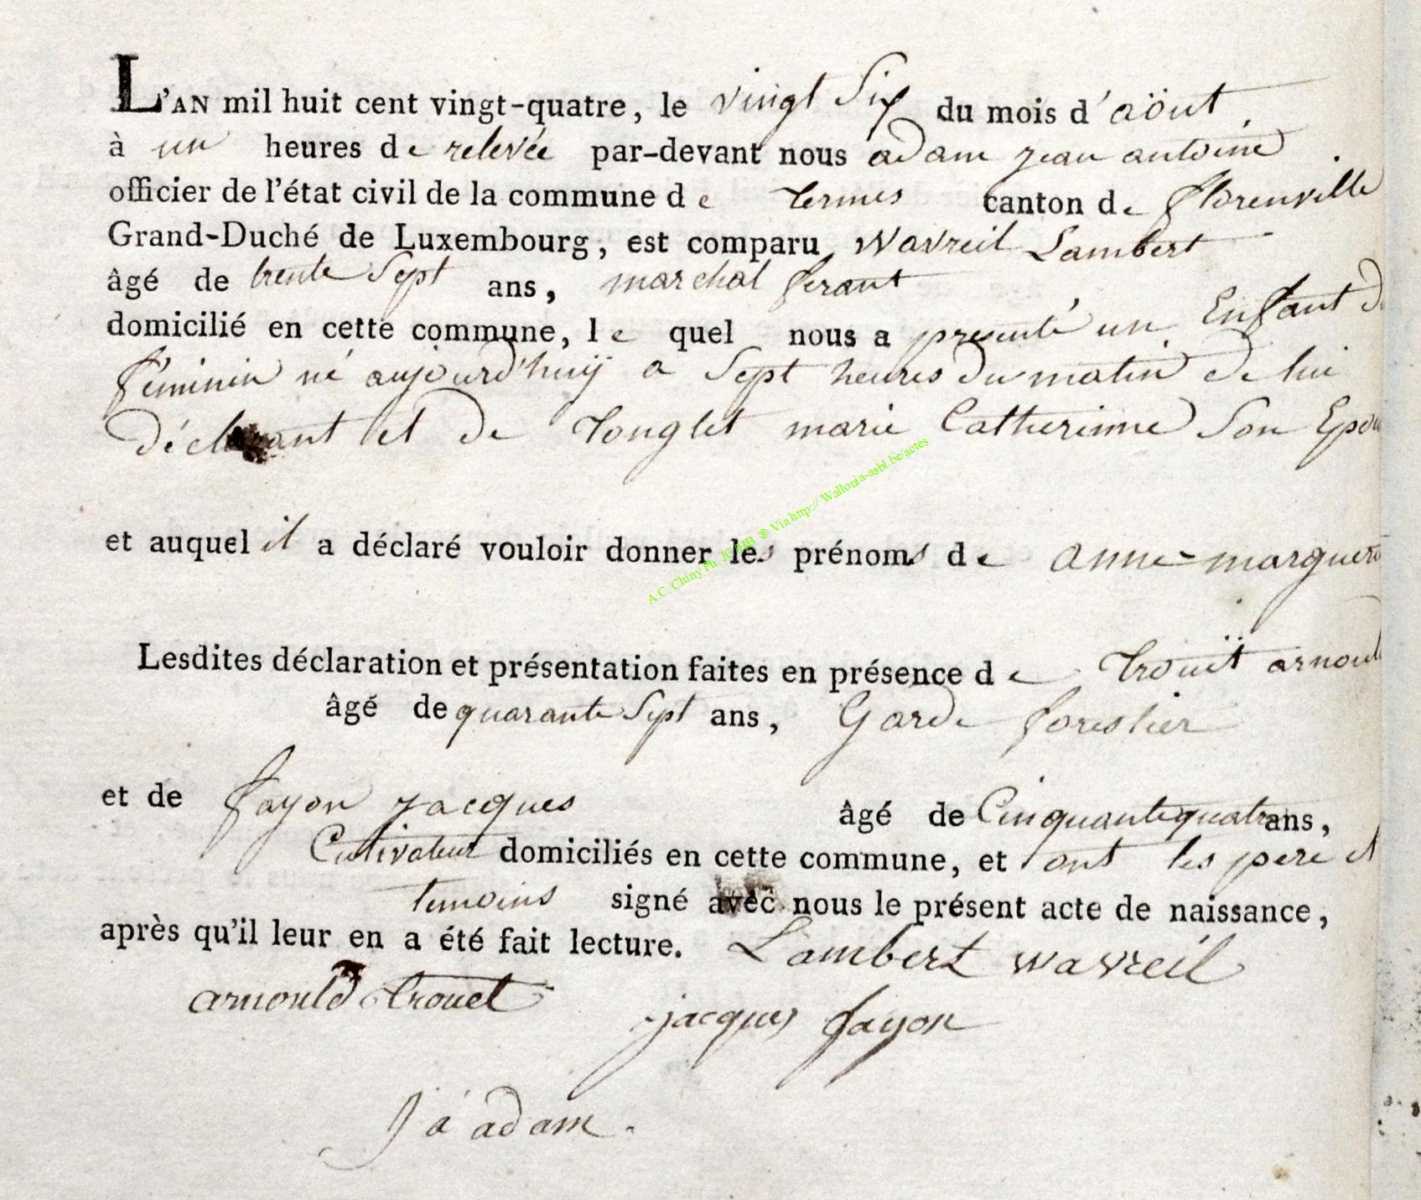 L'AN mil huit cent vingt-quatre, le vingt Six du mois d'aöut
à un heures de relevée par-devant nous adam jean antoine
officier de l'état civil de la commune de termes canton de florenville
Grand-Duché de Luxembourg, est comparu Wavreil Lambert
âgé de trente Sept ans, marchal ferant
domicilié en cette commune, le quel nous a presenté un Enfant d
féminin né aujourd'huÿ a Sept heures du matin de lui
déclarant et de tonglet marie Catherinne Son Epou
et auquel il a déclaré vouloir donner les prénoms de anne-marguer
Lesdites déclaration et présentation faites en présence de trouët arnould
âgé de quarante Sept ans, Garde forestier
et de fayon jacques âgé de Cinquante quatre ans,
Cultivateur domiciliés en cette commune, et ont les pere et
temoins signé avec nous le présent acte de naissance,
après qu'il leur en a été fait lecture. Lambert wavreil
arnould trouet
jacques fayon
j a adam.
A.C. Chiny Ph. ® Via http:// Wallonia-asbl.be/actes